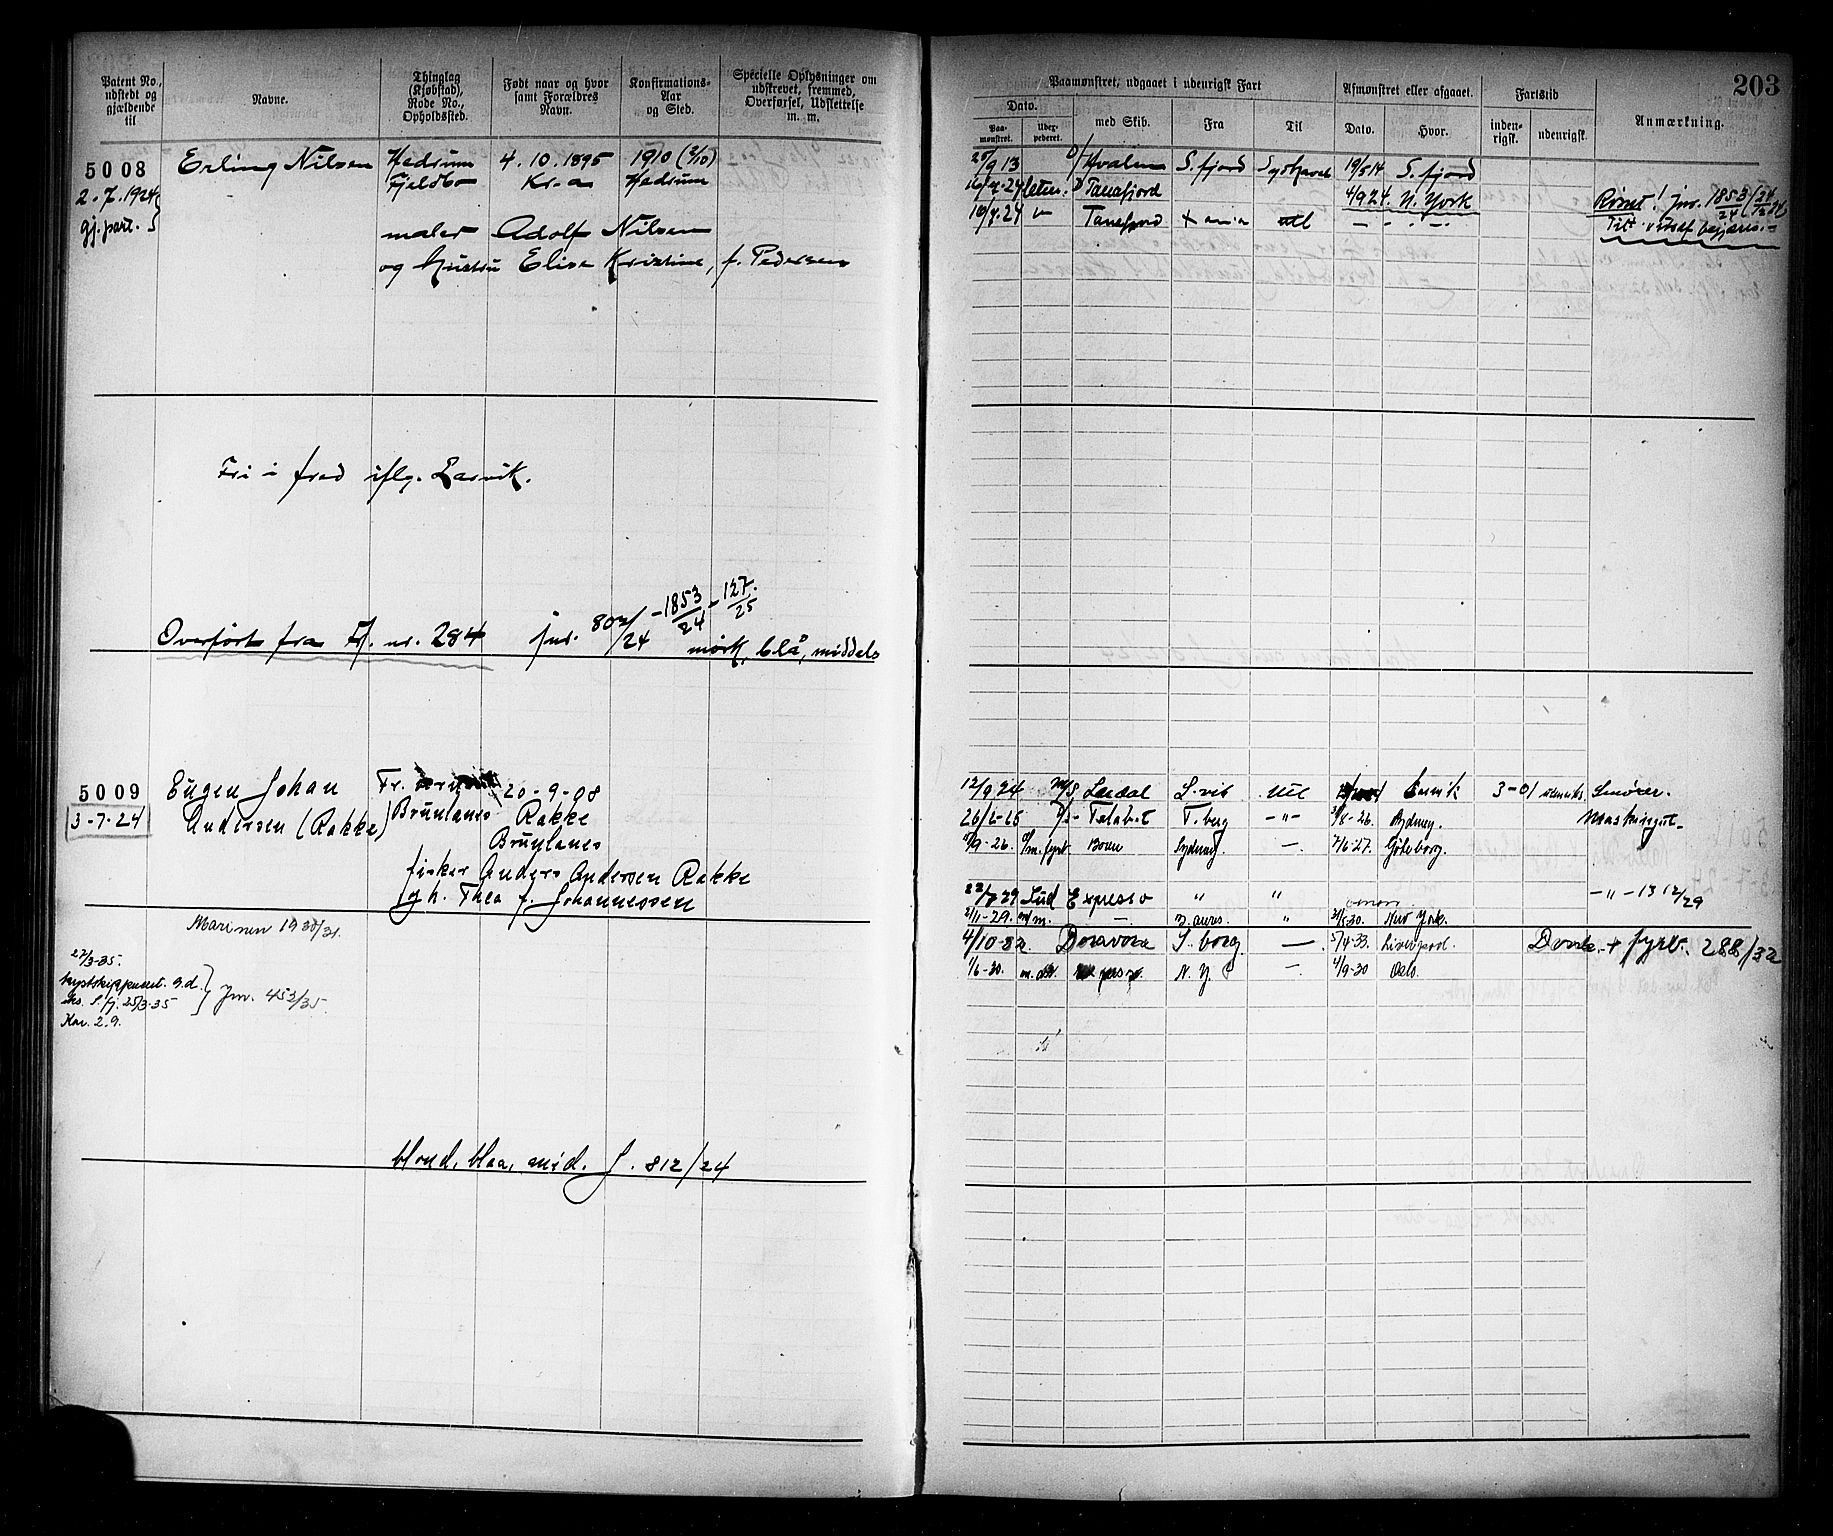 Patent No., udstedt og gjældende til
Navne.
Thinglag (Kjøbstad), Rode No., Opholdssted.
Født naar og hvor samt Forældres Navn.
Konfirmations-Aar og Sted.
Specielle Oplysninger om udskrevet, fremmed, Overførsel, Udslettelse m. m.
5008
2.7.1924
gj. part.
Erling Nilsen
Hedrum
Fjeldbo
4. 10. 1895
Kr.a
1910 (2/10)
Hedrum
maler Adolf Nilsen
og hustru Elise Kristine, f. Pedersen
Fri i fred iflg. Larvik.
Overført fra Fj. nr. 284 jnr. 802/24 - 1853/24 - 127/25
mørk, blå, middels
5009
3-7-24
Eugen Johan
Andersen (Rakke)
Fr.
Brunlanes
20-9-08
Rakke
Brunlanes
fisker Anders Andersen Rakke
og h. Thea f. Johannessen
Marinen 1930/31.
27/3-35.
kystskipperset. g.d.
S.fj. 25/3-35
Kar. 2.9.
Jnr. 453/35.
blond, blaa, mid. J. 812/24
203
Paamønstret, udgaaet i udenrigsk Fart
Afmønstret eller afgaaet.
Fartstid
Anmærkning.
Dato.
Paa-mønstret.
med Skib.
Fra
Til
Dato.
Hvor.
inden-rigsk.
udenrigsk.
25/9 13 Hvalen S.fjord Sydhavet 19/5 14 S. fjord
16/4-24 Tanafjord 4/9 24. N. York
10/7.24 Tanafjord X ania utl - - " -
Jnr. 1853/24
12/9 24 m/S Lardal L.vik Utl 3-01 Smører.
26/6-25 Talabot T.berg -"- /8-26. Sydney.
/9-26. fyrb. Sydney. - 7/6-27. Göteborg.
22/8 29 Expresso " " -"- 13 12/29
2/11-29. m. - B. aires. " /5-30. New York.
4/10-32 S. borg - 5/4-33. Liverpool. + fyrb. 288/32
1/6-30. N.Y. - 4/9-30 Oslo.